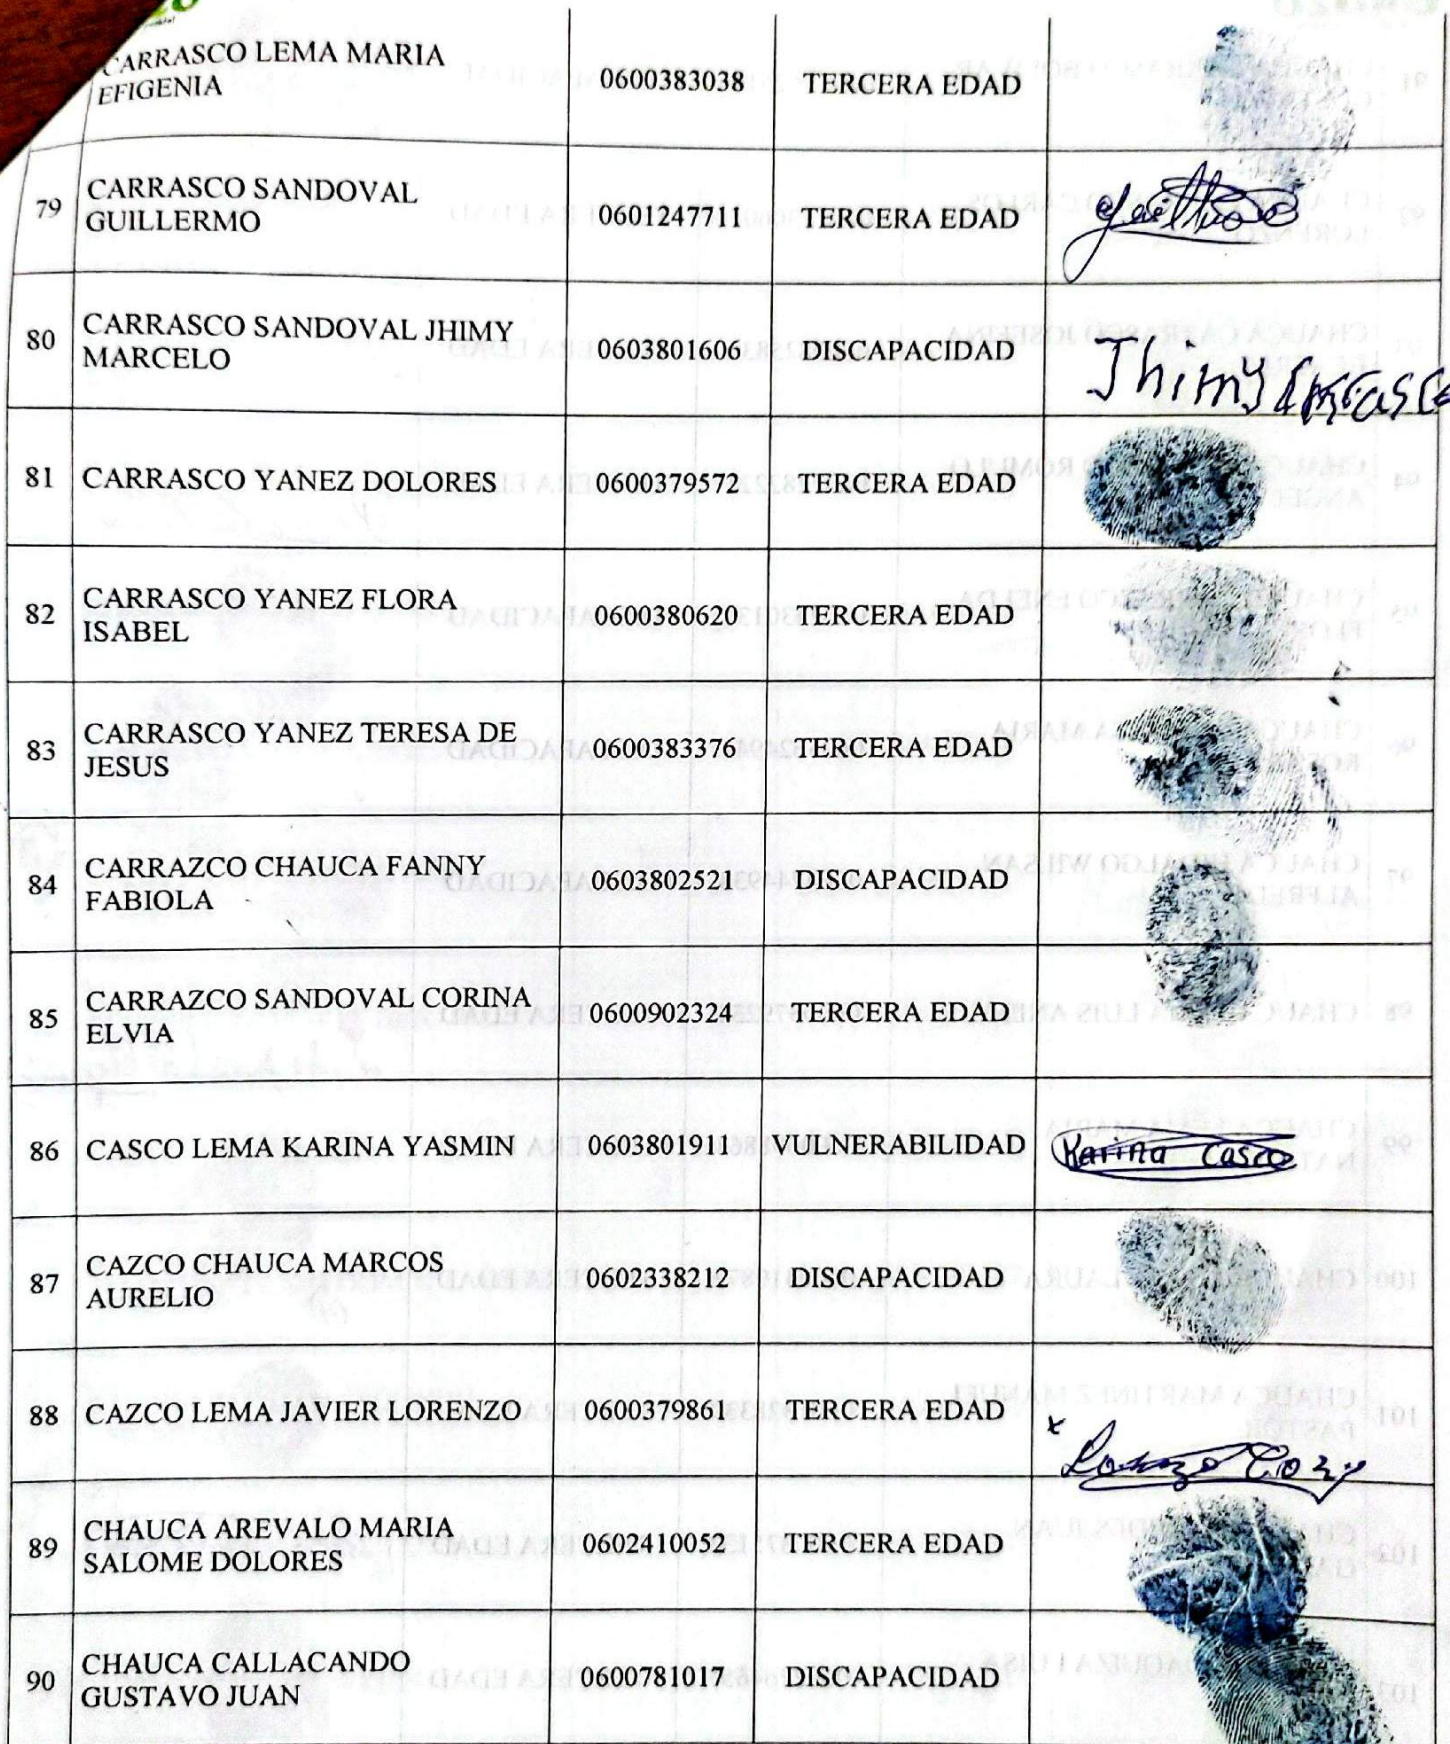 CARRASCO LEMA MARIA
EFIGENIA
0600383038
TERCERA EDAD
79
CARRASCO SANDOVAL
GUILLERMO
0601247711
TERCERA EDAD
80
CARRASCO SANDOVAL JHIMY
MARCELO
0603801606
DISCAPACIDAD
Jhimy
81
CARRASCO YANEZ DOLORES
0600379572
TERCERA EDAD
82
CARRASCO YANEZ FLORA
ISABEL
0600380620
TERCERA EDAD
83
CARRASCO YANEZ TERESA DE
JESUS
0600383376
TERCERA EDAD
84
CARRAZCO CHAUCA FANNY
FABIOLA
0603802521
DISCAPACIDAD
85
CARRAZCO SANDOVAL CORINA
ELVIA
0600902324
TERCERA EDAD
86
CASCO LEMA KARINA YASMIN
0603801911
VULNERABILIDAD
Karina Casco
87
CAZCO CHAUCA MARCOS
AURELIO
0602338212
DISCAPACIDAD
88
CAZCO LEMA JAVIER LORENZO
0600379861
TERCERA EDAD
x
89
CHAUCA AREVALO MARIA
SALOME DOLORES
0602410052
TERCERA EDAD
90
CHAUCA CALLACANDO
GUSTAVO JUAN
0600781017
DISCAPACIDAD